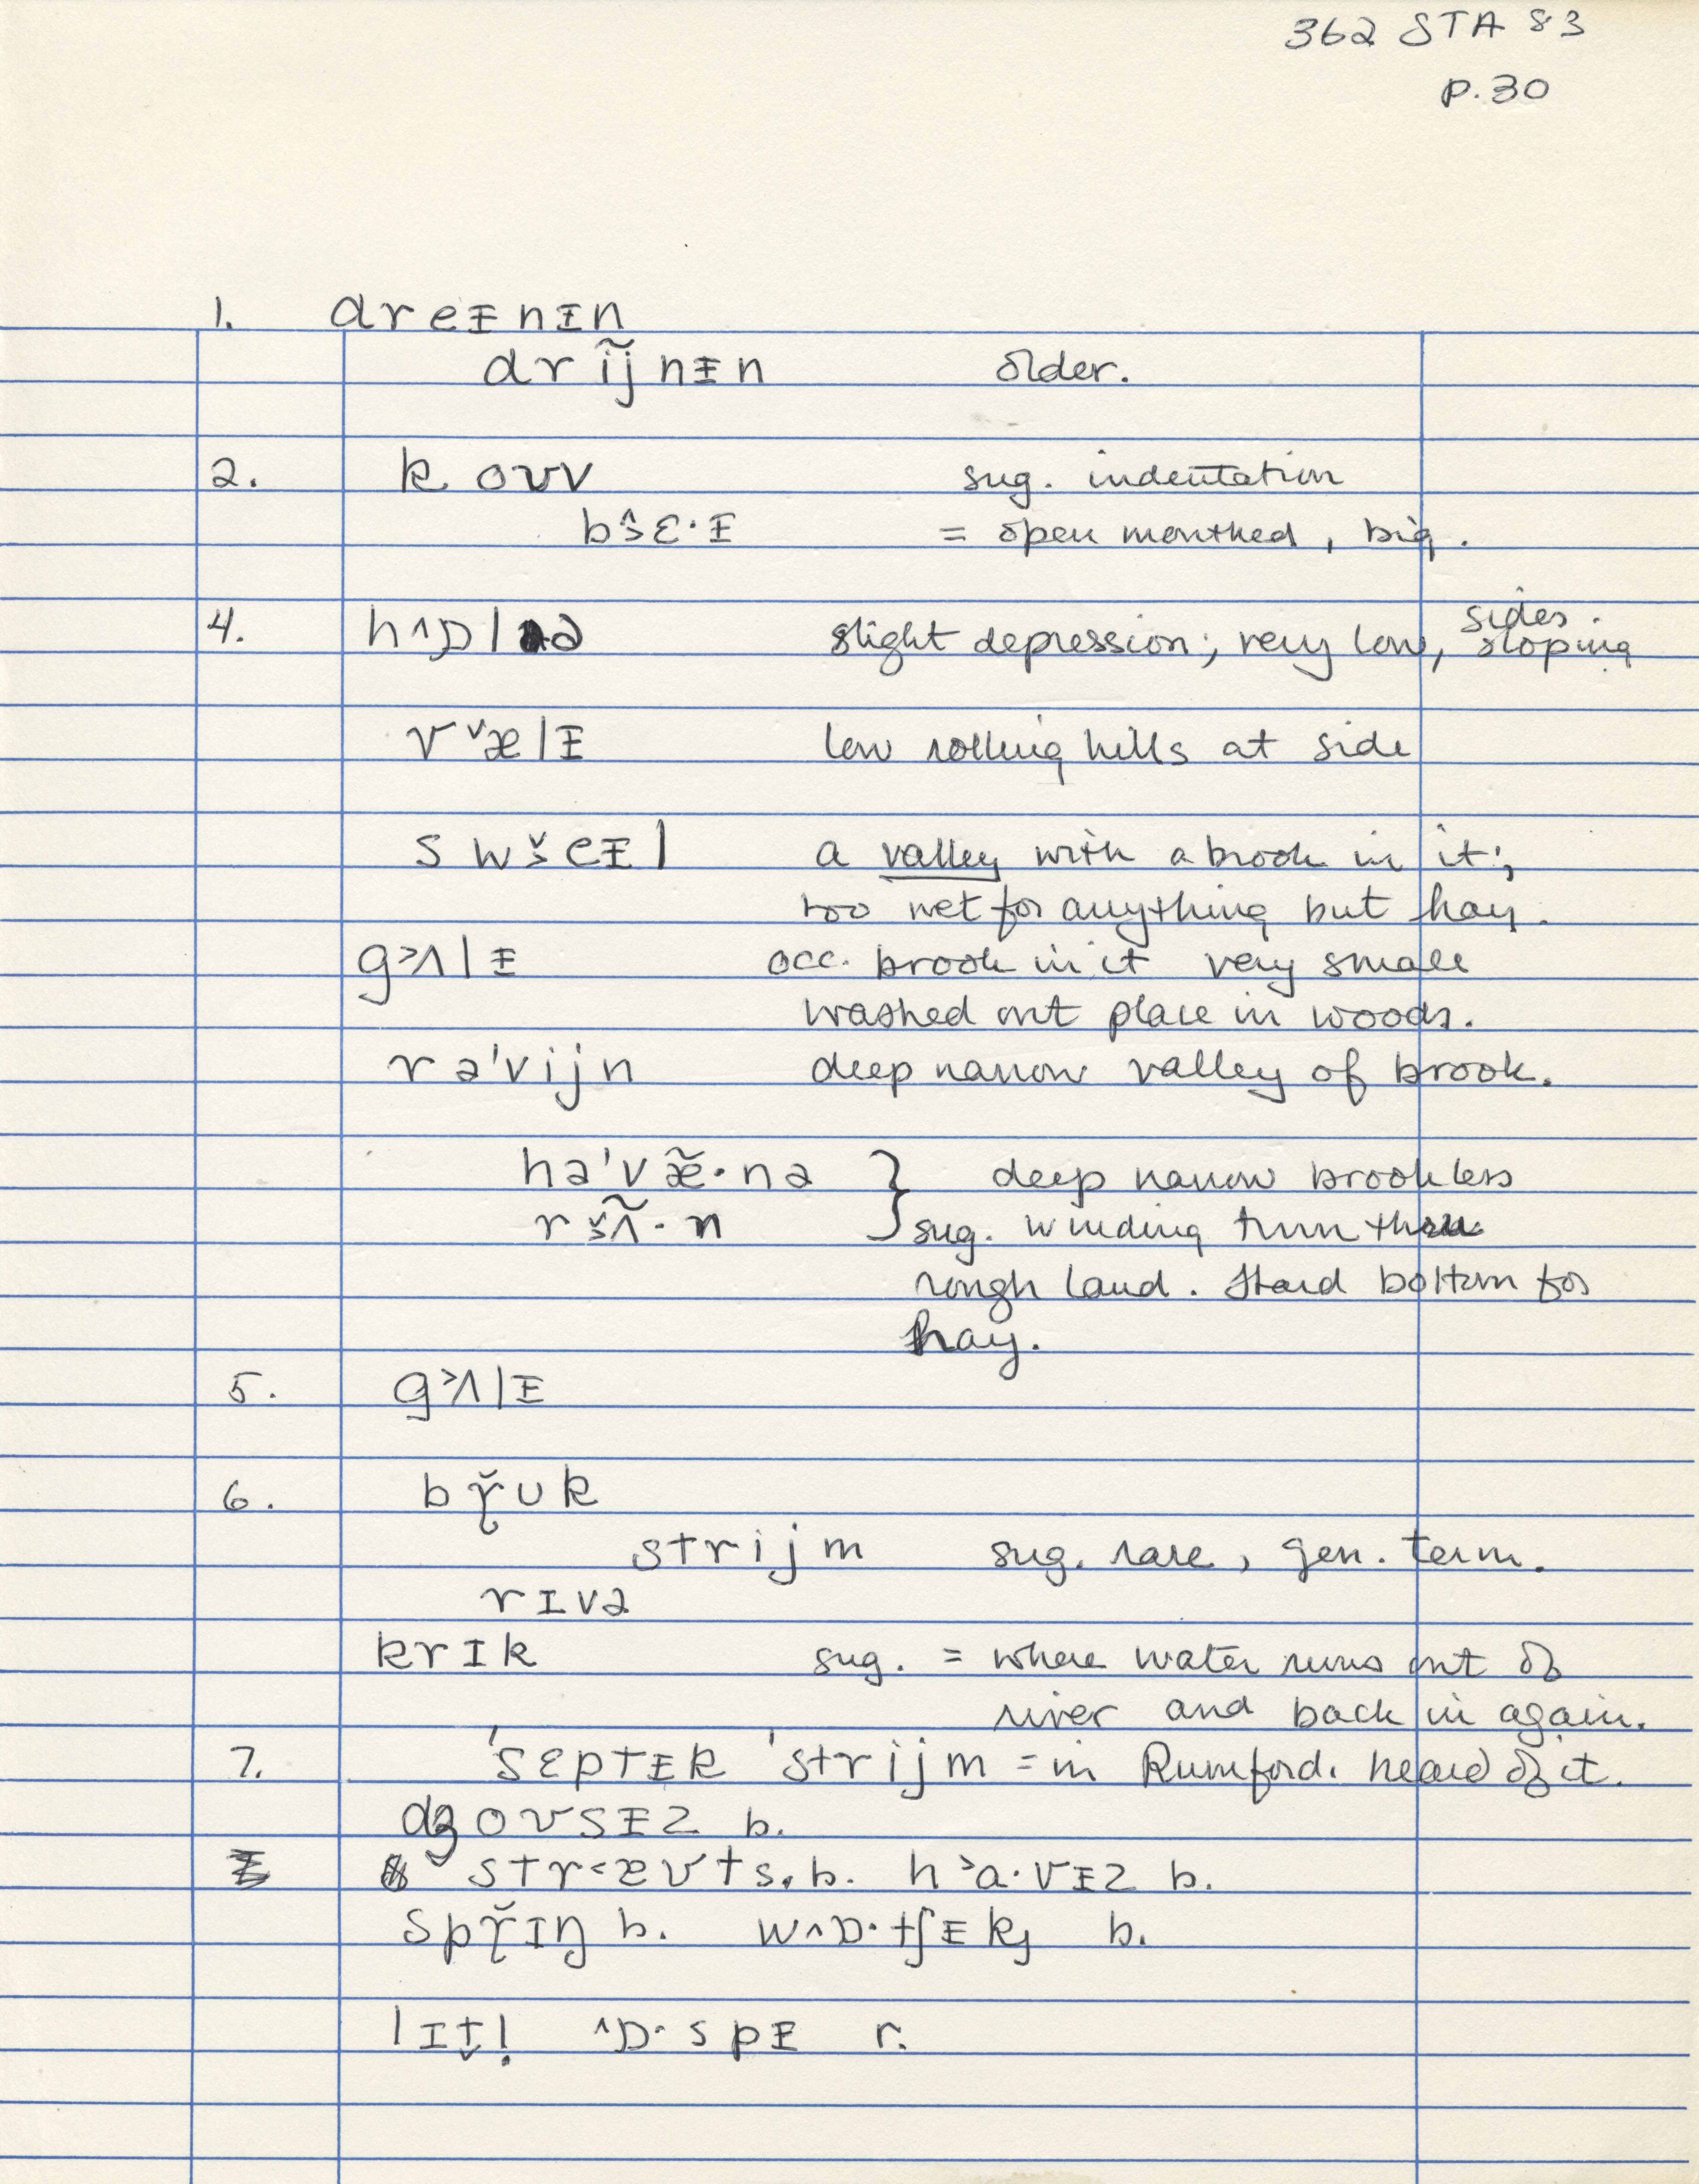 362 STA 83
p. 30
1. dreᵻnᵻn
drĩj̃nᵻn older.
2. koʊv sug. indentation
b§̂ɛ·ᵻ = open mouthed, big.
4. h^ɒlə slight depression; very low, sloping sides.
vˇælᵻ low rolling hills at side
swš̌eᵻl a valley with a brook in it;
too wet for anything but hay.
g˃ʌlᵻ occ. brook in it very small
washed out place in woods.
rə'vijn deep narrow valley of brook.
hə'væ̃·nə } deep narrow brookless
rʌ̃·n sug. winding turn thru
rough land. Hard bottom for
hay.
5. g˃ʌlᵻ
6. bř̥ʊk
strijm sug. rare, gen. term.
rɪvə
krɪk sug. = where water runs out of
river and back in again.
7. 'sɛptᵻk 'strijm = in Rumford. heard of it.
dʒoʊsᵻz b.
str˂æʊts. b. h˃a·vᵻz b.
spř̥ɪŋ b. w^ɒ·tʃᵻk b.
lɪt̬l̩ ^ɒ·spᵻ r.